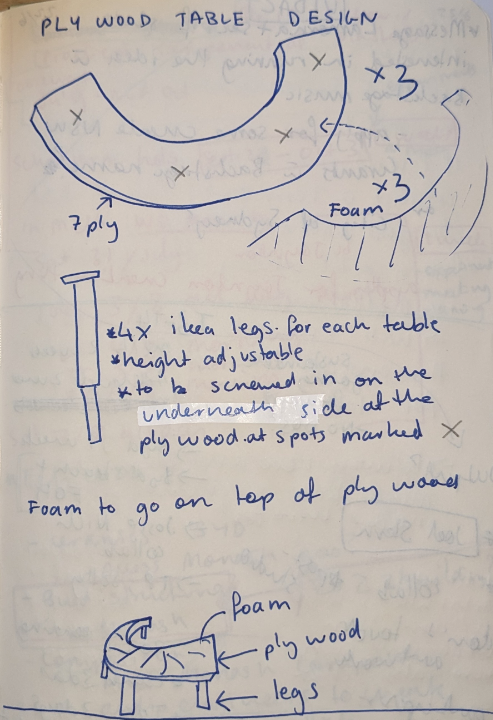 PLY WOOD TABLE DESIGN
x3
x3
Foam
7 ply
*4x ikea legs. for each table
*height adjustable
*to be screwed in on the
underneath side at the
ply wood.at spots marked X
Foam to go on top of ply wood
foam
ply wood
legs